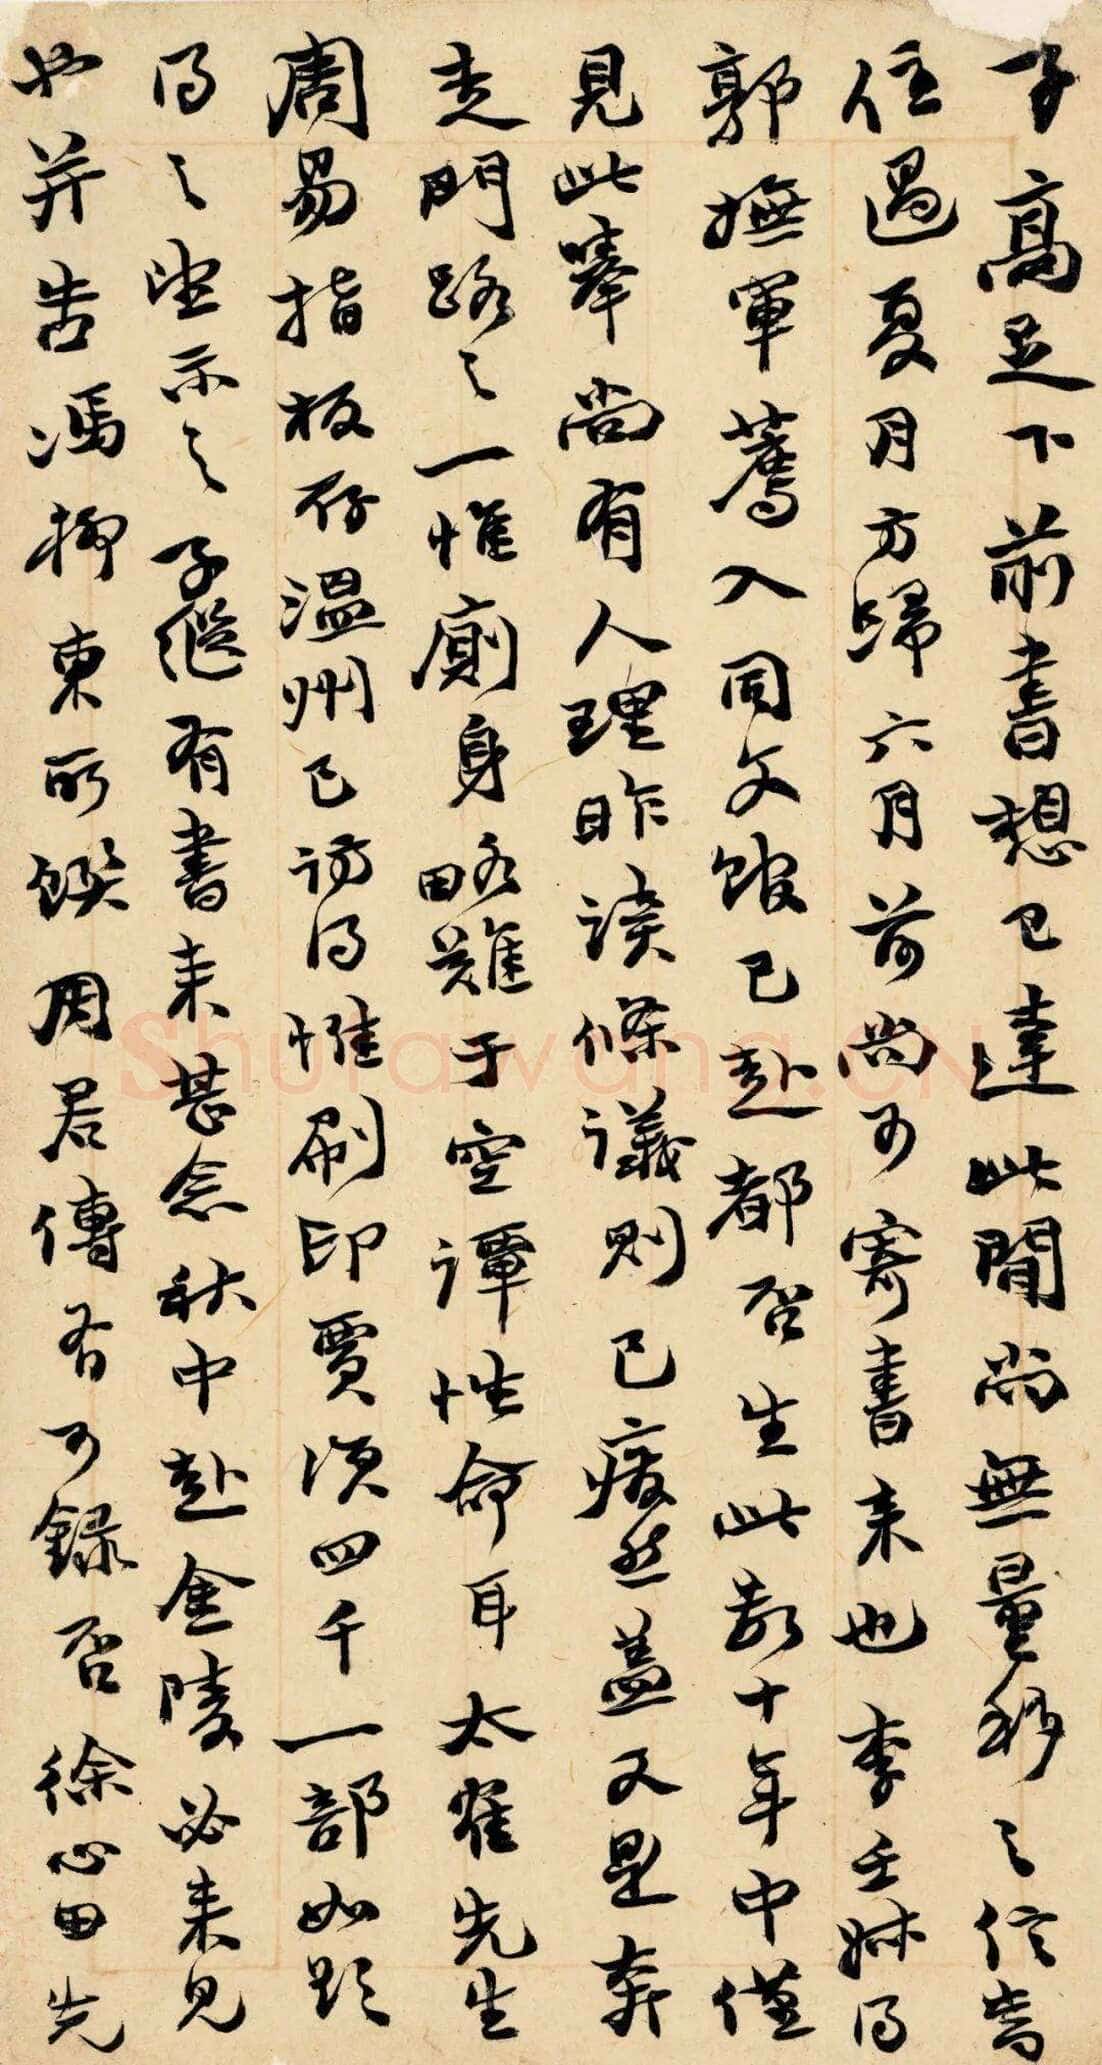 子高足下前書想已達此間尚無量移之信當
住過夏月方歸六月前尚可寄書來也李壬叔得
郭撫軍薦入同文館已赴都否生此數十年中僅
見此舉尚有人理昨讀條議則已癈然蓋又是奔
走門路之一惟廁身略難于空譚性命耳太雀先生
周易指板存溫州已訪得惟刷印賈須四千一部如欲
得之望示之子繼有書來甚念秋中赴金陵必來見
也并告馮柳東所饌周君傳有可錄否徐心田先
Shufawang.CN